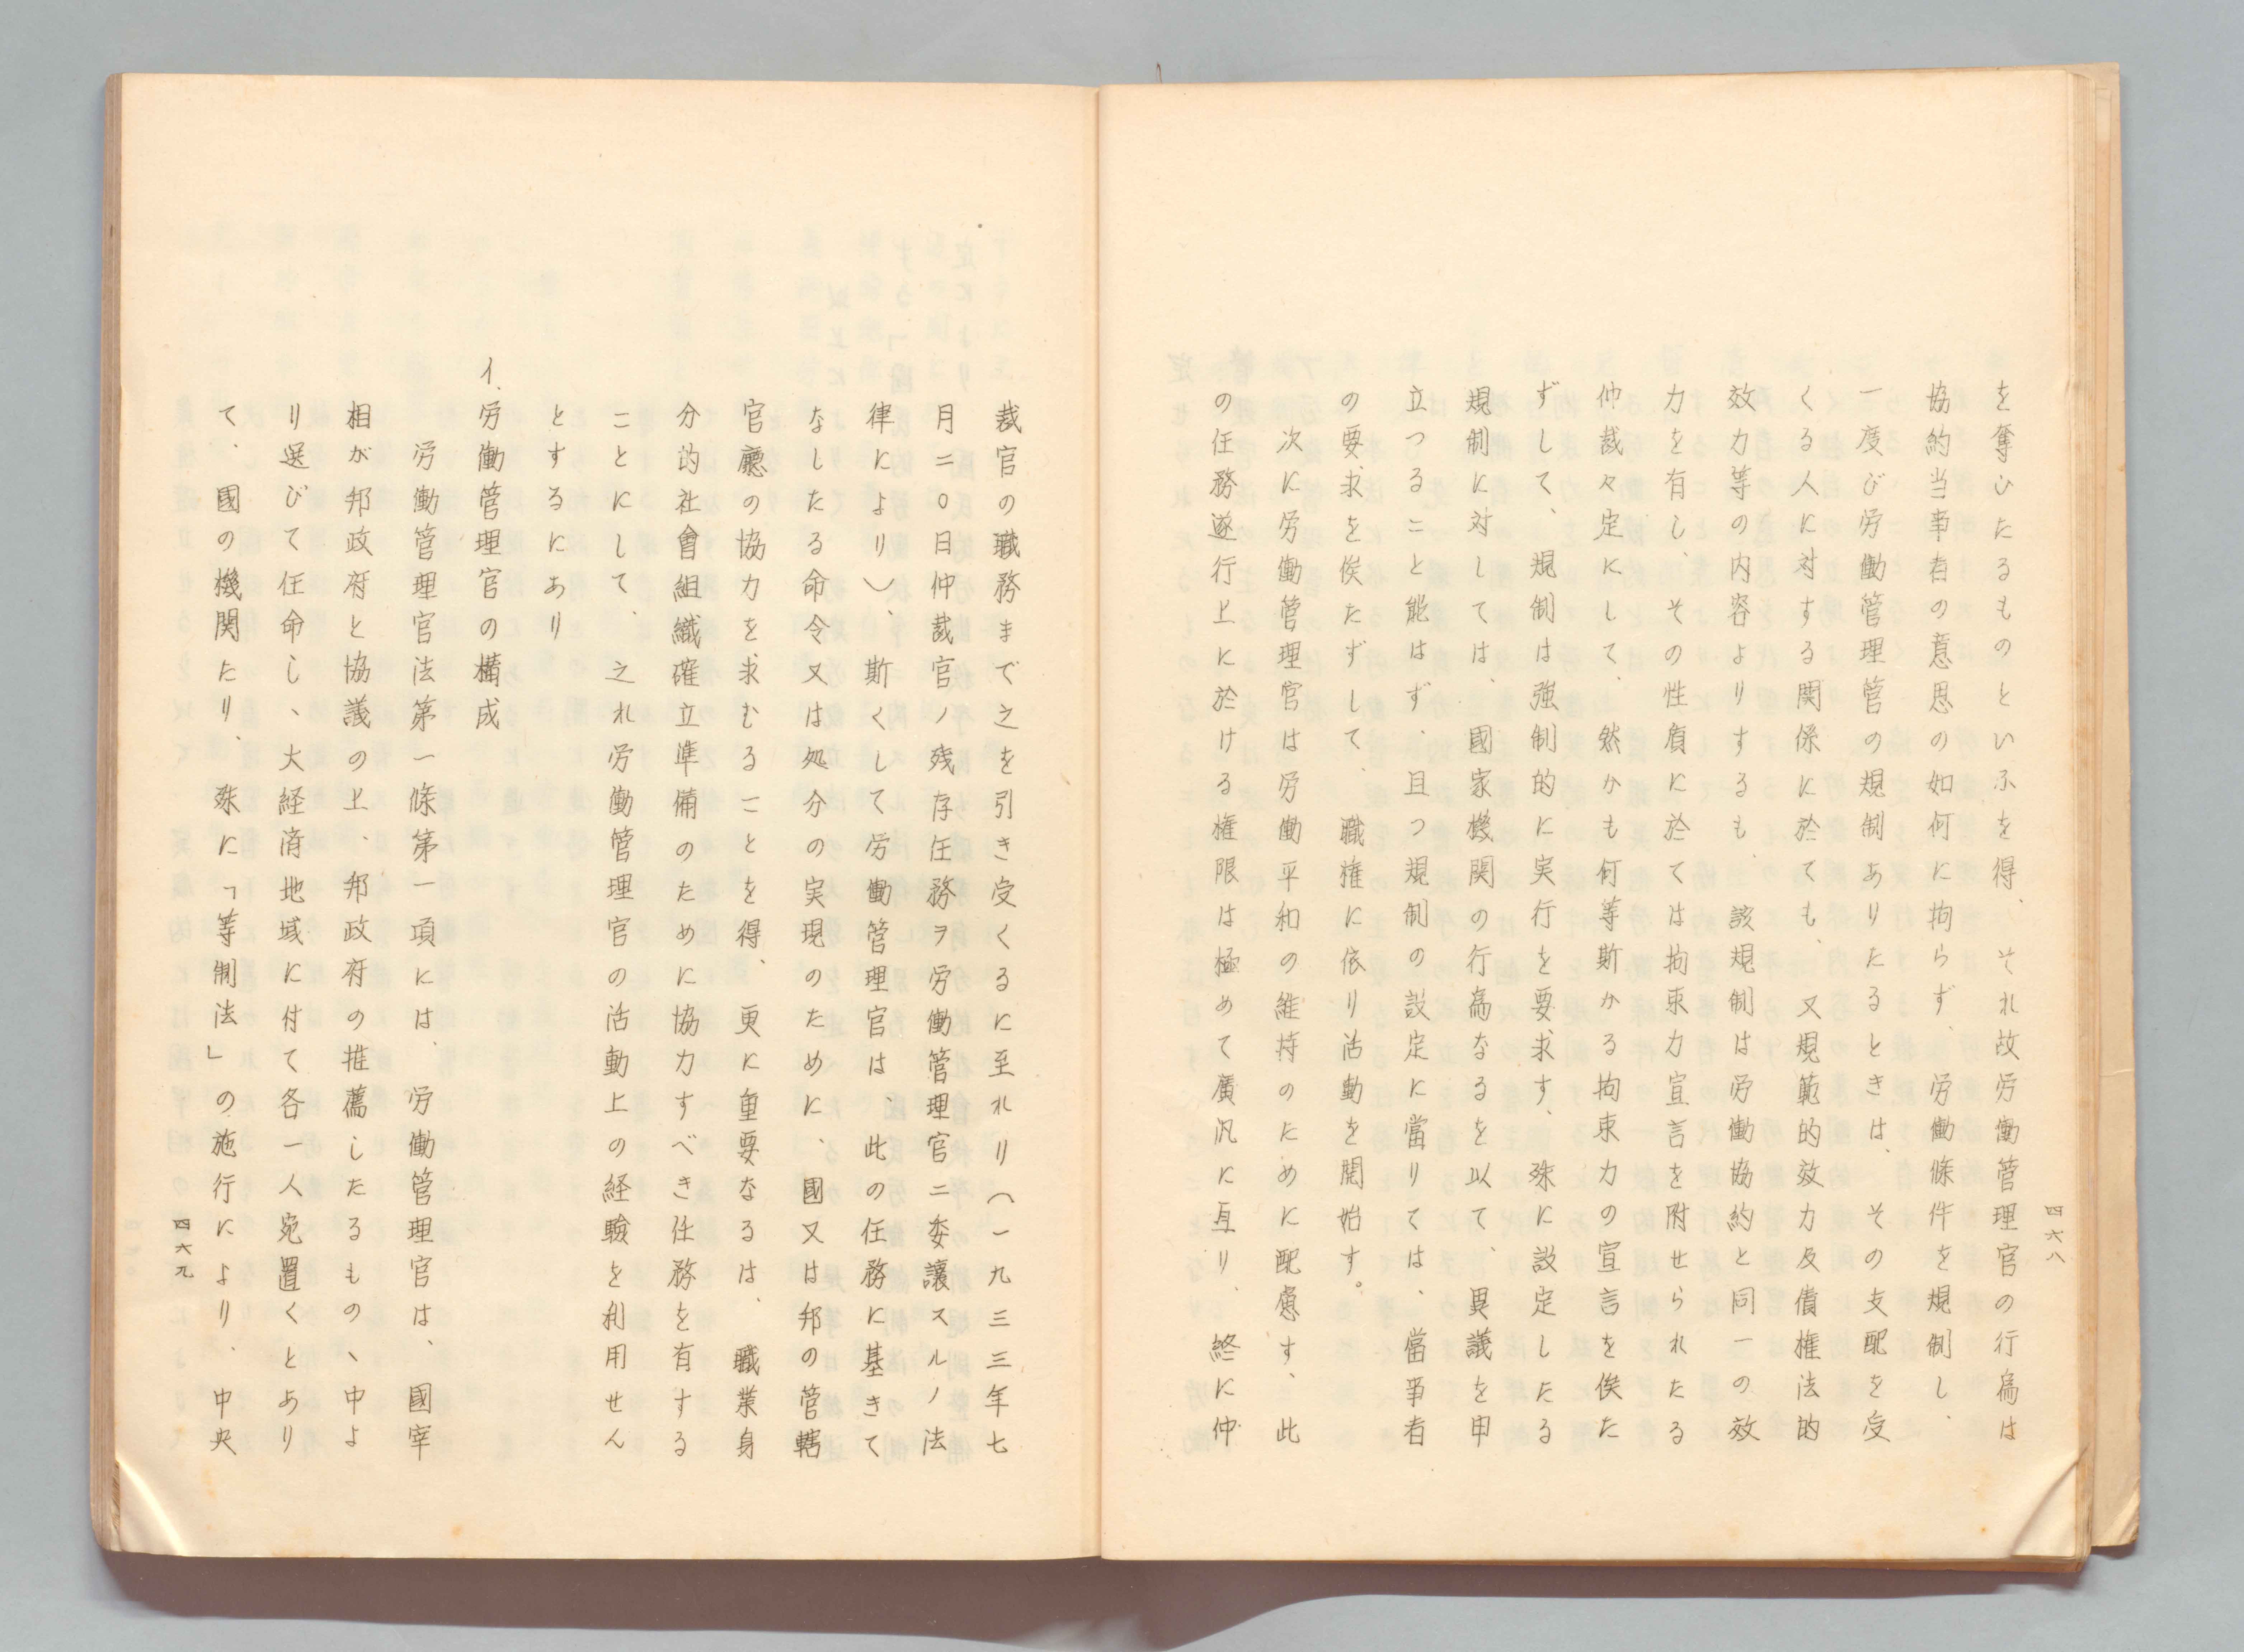 を奪ひたるものといふを得、それ故労働管理官の行為は
協約当事者の意思の如何に拘らず、労働條件を規制し、
一度び労働管理管の規制ありたるときは、その支配を受
くる人に対する関係に於ても、又規範的效力及債権法的
效力等の内容よりするも、該規制は労働協約と同一の效
力を有し、その性質に於ては拘束力宣言を附せられたる
仲裁々定にして、然かも何等斯かる拘束力の宣言を俟た
ずして、規制は強制的に実行を要求す、殊に設定したる
規制に対しては、國家機関の行為なるを以て、異議を申
立つること能はず、且つ規制の設定に當りては、當事者
の要求を俟たずして、職権に依り活動を開始す。
次に労働管理官は労働平和の維持のために配慮す、此
の任務遂行上に於ける権限は極めて廣汎に亙り、終に仲
四六八
裁官の職務まで之を引き受くるに至れり（一九三三年七
月二〇日仲裁官ノ残存任務ヲ労働管理官ニ委譲スルノ法
律により）、斯くして労働管理官は、此の任務に基きて
なしたる命令又は処分の実現のために、國又は邦の管轄
官廳の協力を求むることを得、更に重要なるは、職業身
分的社會組織確立準備のために協力すべき任務を有する
ことにして、之れ労働管理官の活動上の経験を利用せん
とするにあり
イ、労働管理官の構成
労働管理官法第一條第一項には、労働管理官は、國宰
相が邦政府と協議の上、邦政府の推薦したるもの、中よ
り選びて任命し、大経済地域に付て各一人宛置くとあり
て、國の機関たり、殊に「等制法」の施行により、中央
四六九